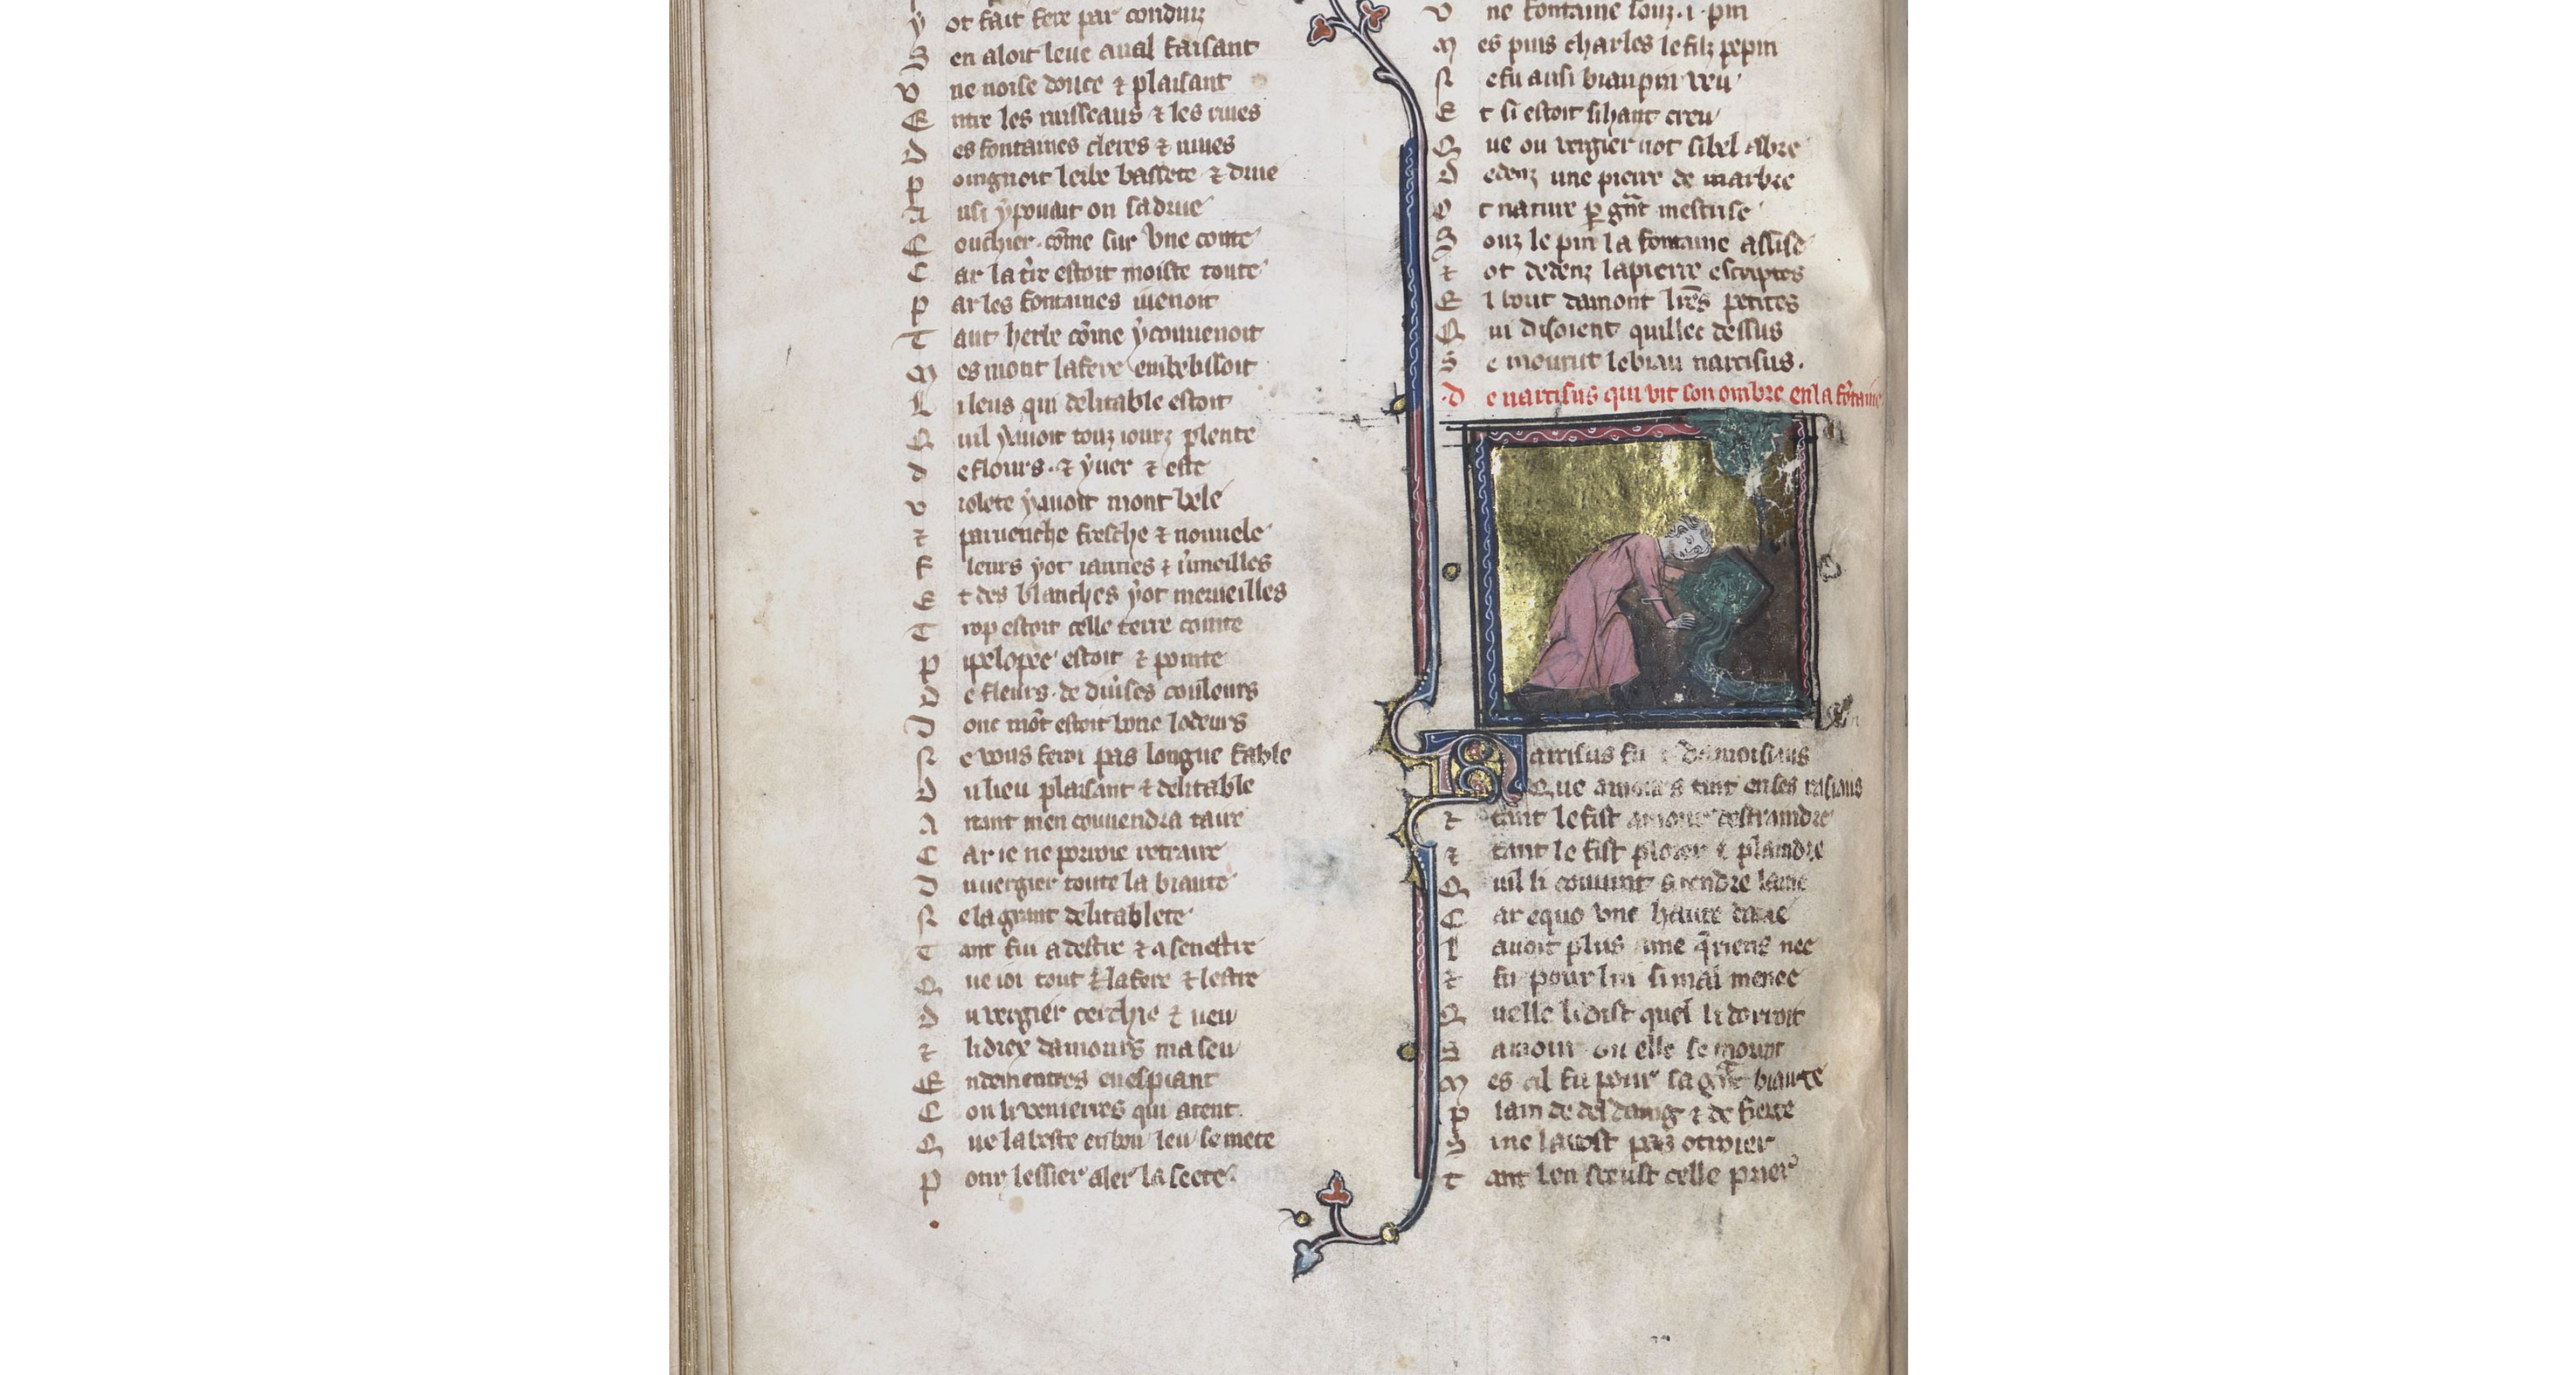 y ot fait fere par conduiz
S en aloit leue aual faisant
v ne noise douce ⁊ plaisant
E ntre les ruisseaus ⁊ les riues
D es fontaines cleres ⁊ uiues
p oingnoit lerbe bassete ⁊ drue
A usi ẏ pouait on sa drue
C ouchier. cõme sur vne coute
C ar la t̾re estoit moiste toute
p ar les fontaines uenoit
T ant herbe cõme ẏ conuenoit
M es mont lafere embelissoit
L i leus qui delitable estoit
Q uil ẏ auoit touz iourz plente
d e flours. ⁊ ẏuer ⁊ este
v iolete ẏ auoit mont bele
⁊ paruenche fresche ⁊ nouuele
F leurs ẏot iaunes ⁊ u̾meilles
E t des blanches ẏot merueilles
T rop estoit celle terre cointe
p ipelopee estoit ⁊ pointe
D e fleurs. de diu̾ses couleurs
D ont mõt estoit bone lodeurs
N e vous feroi pas longue fable
D u lieu plaisant ⁊ delitable
A ntant men couuendra taire
C ar ie ne porroie retraire
D u uergier toute la biaute
N e la grant delitablete
T ant fui a destre ⁊ a senestre
Q ue ioi tout lafere ⁊ lestre
d u vergier cerchie ⁊ ueu
⁊ li diex damours ma seu
E ndementres en espiant
C on li venierres qui atent
Q ue la beste en bon leu se mete
P our lessier aler la seete.
v ne fontaine souz .i. pin
M es puis charles le filz pepin
N e fu ausi biau pin veu
E t si estoit si haut creu
Q ue ou vergier not si bel abre
D edenz une pierre de marbre
O t nature p̲ gñt mestrise
S ouz le pin la fontaine assise
⁊ ot dedenz la pierre escriptes
E l bout damont lr̃es petites
Q ui disoient quillec dessus
S e mourut le biau narcisus.
.D e narcisus qui vit son ombre en la fõtaine
Narcisus fu damoisiaus
Que amours tint en ses raisiaus
⁊ tant le fist amour destraindre
⁊ tant le fist plorer ⁊ plaindre
Q uil li couuint a rendre lame
C ar equo vne haute dame
L auoit plus ame q̃ riens nee
⁊ fu pour lui si mal menee
Q uelle li dist quel li dorroit
S amour ou elle se mourroit
M es cil fu pour sa gñt biaute
P lain de desdaing ⁊ de fierte
S i ne la vost pas otroier
t ant len seeust celle prier